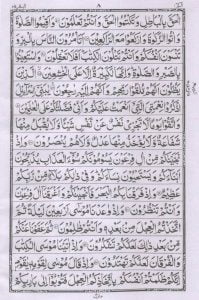 ٨
الْحَقَّ بِالْبَاطِلِ وَتَكْتُمُوا الْحَقَّ وَاَنْتُمْ تَعْلَمُوْنَ وَاَقِيْمُوا الصَّلٰوةَ
وَاٰتُوا الزَّكٰوةَ وَارْكَعُوْا مَعَ الرّٰكِعِيْنَ اَتَاْمُرُوْنَ النَّاسَ بِالْبِرِّ وَ
تَنْسَوْنَ اَنْفُسَكُمْ وَاَنْتُمْ تَتْلُوْنَ الْكِتٰبَ اَفَلَا تَعْقِلُوْنَ وَاسْتَعِيْنُوْا
بِالصَّبْرِ وَالصَّلٰوةِ وَاِنَّهَا لَكَبِيْرَةٌ اِلَّا عَلَى الْخٰشِعِيْنَ الَّذِيْنَ
يَظُنُّوْنَ اَنَّهُمْ مُّلٰقُوْا رَبِّهِمْ وَاَنَّهُمْ اِلَيْهِ رٰجِعُوْنَ يٰبَنِيْٓ اِسْرَآءِيْلَ
اذْكُرُوْا نِعْمَتِيَ الَّتِيْٓ اَنْعَمْتُ عَلَيْكُمْ وَاَنِّيْ فَضَّلْتُكُمْ عَلَى الْعٰلَمِيْنَ
وَاتَّقُوْا يَوْمًا لَّا تَجْزِيْ نَفْسٌ عَنْ نَّفْسٍ شَيْئًا وَّلَا يُقْبَلُ مِنْهَا
شَفَاعَةٌ وَّلَا يُؤْخَذُ مِنْهَا عَدْلٌ وَّلَا هُمْ يُنْصَرُوْنَ وَاِذْ
نَجَّيْنٰكُمْ مِّنْ اٰلِ فِرْعَوْنَ يَسُوْمُوْنَكُمْ سُوْٓءَ الْعَذَابِ يُذَبِّحُوْنَ
اَبْنَآءَكُمْ وَيَسْتَحْيُوْنَ نِسَآءَكُمْ وَفِيْ ذٰلِكُمْ بَلَآءٌ مِّنْ رَّبِّكُمْ
عَظِيْمٌ وَاِذْ فَرَقْنَا بِكُمُ الْبَحْرَ فَاَنْجَيْنٰكُمْ وَاَغْرَقْنَآ اٰلَ فِرْعَوْنَ
وَاَنْتُمْ تَنْظُرُوْنَ وَاِذْ وٰعَدْنَا مُوْسٰٓى اَرْبَعِيْنَ لَيْلَةً ثُمَّ
اتَّخَذْتُمُ الْعِجْلَ مِنْۢ بَعْدِهٖ وَاَنْتُمْ ظٰلِمُوْنَ ثُمَّ عَفَوْنَا عَنْكُمْ
مِّنْۢ بَعْدِ ذٰلِكَ لَعَلَّكُمْ تَشْكُرُوْنَ وَاِذْ اٰتَيْنَا مُوْسَى الْكِتٰبَ
وَالْفُرْقَانَ لَعَلَّكُمْ تَهْتَدُوْنَ وَاِذْ قَالَ مُوْسٰى لِقَوْمِهٖ يٰقَوْمِ
اِنَّكُمْ ظَلَمْتُمْ اَنْفُسَكُمْ بِاتِّخَاذِكُمُ الْعِجْلَ فَتُوْبُوْٓا اِلٰى بَارِئِكُمْ